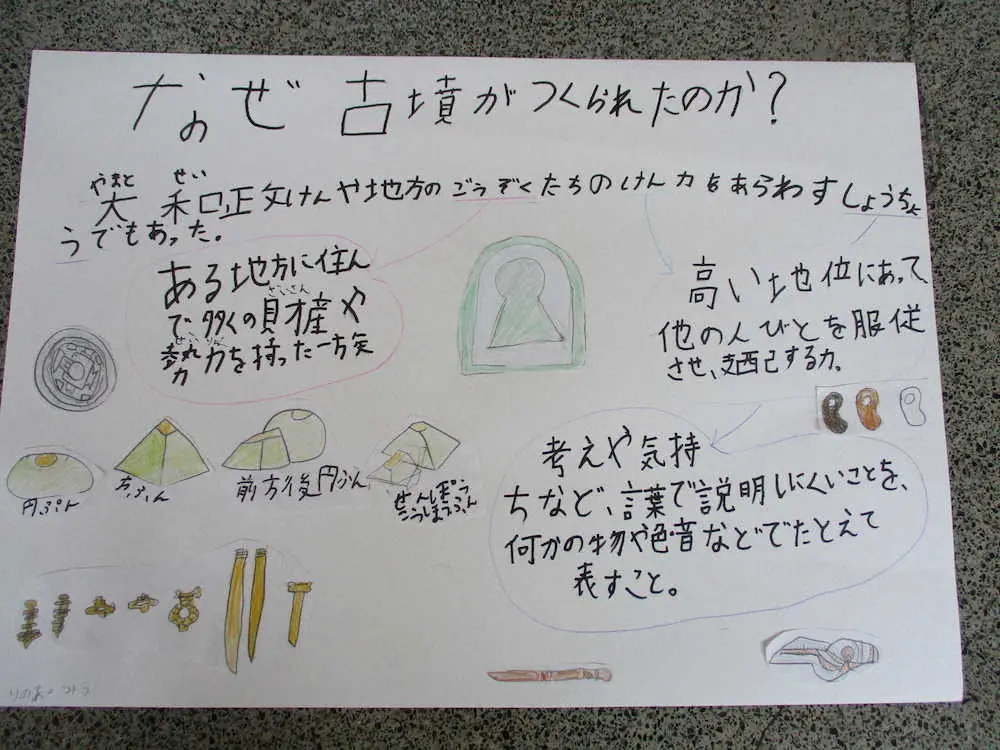 なぜ古墳がつくられたのか?
やまと せい
大和正文けんや地方のごうぞくたちのけん力をあらわすしょうちょ
うでもあった。
ある地方に住ん
ざいさん
で多くの財産や
せいりょく
勢力を持った一方矢
高い地位にあって、
他の人びとを服従
させ、支配する力。
円ふん
方ふん
前方後円ふん
ぜんぽう
こうほうふん
考えや気持
ちなど、言葉で説明しにくいことを、
何かの物や色音などでたとえて
表すこと。